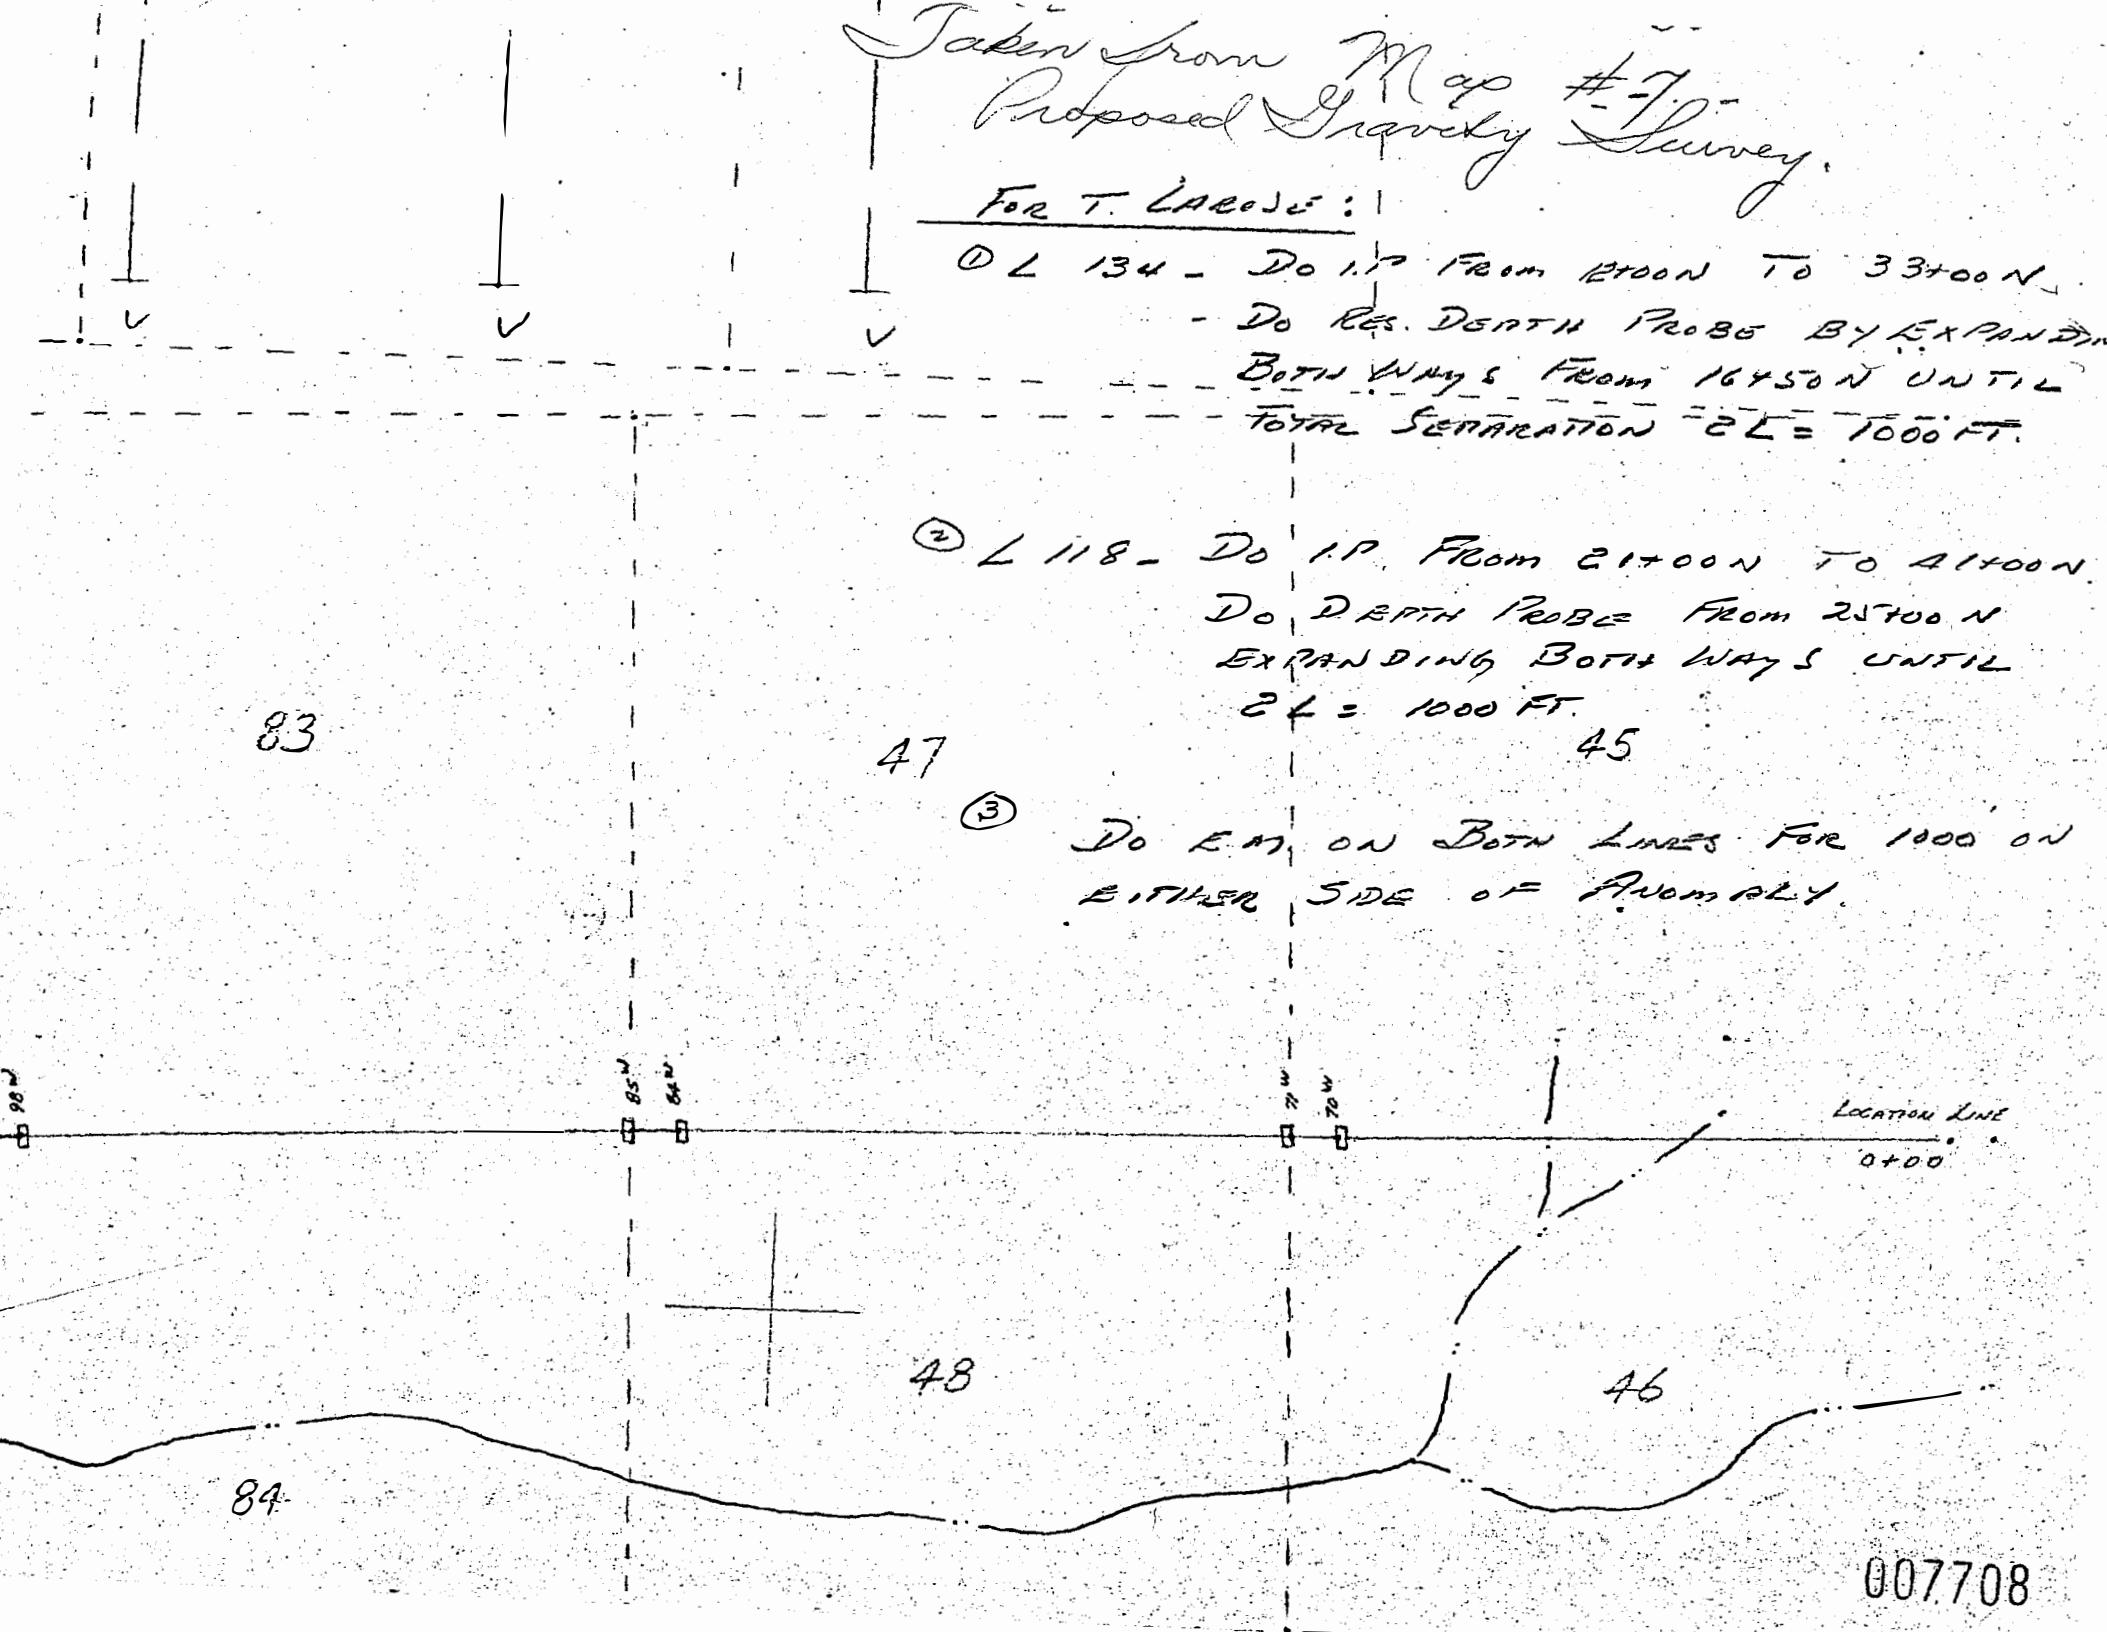 Taken from Map #7.
Proposed Gravity Survey.
FOR T. LAROSE :
① L 134 - DO I.P FROM 12+00N TO 33+00N.
- DO RES. DEPTH PROBE BY EXPANDIN
BOTH WAYS FROM 16+50N UNTIL
TOTAL SEPARATION 2L = 1000 FT.
② L 118 - DO I.P. FROM 21+00N TO 41+00N.
DO DEPTH PROBE FROM 25+00N
EXPANDING BOTH WAYS UNTIL
2L = 1000 FT.
83
47
45
③ DO E.M. ON BOTH LINES FOR 1000 ON
EITHER SIDE OF ANOMALY.
98W
85W
84W
71W
70W
LOCATION LINE
0+00
48
46
84
007708